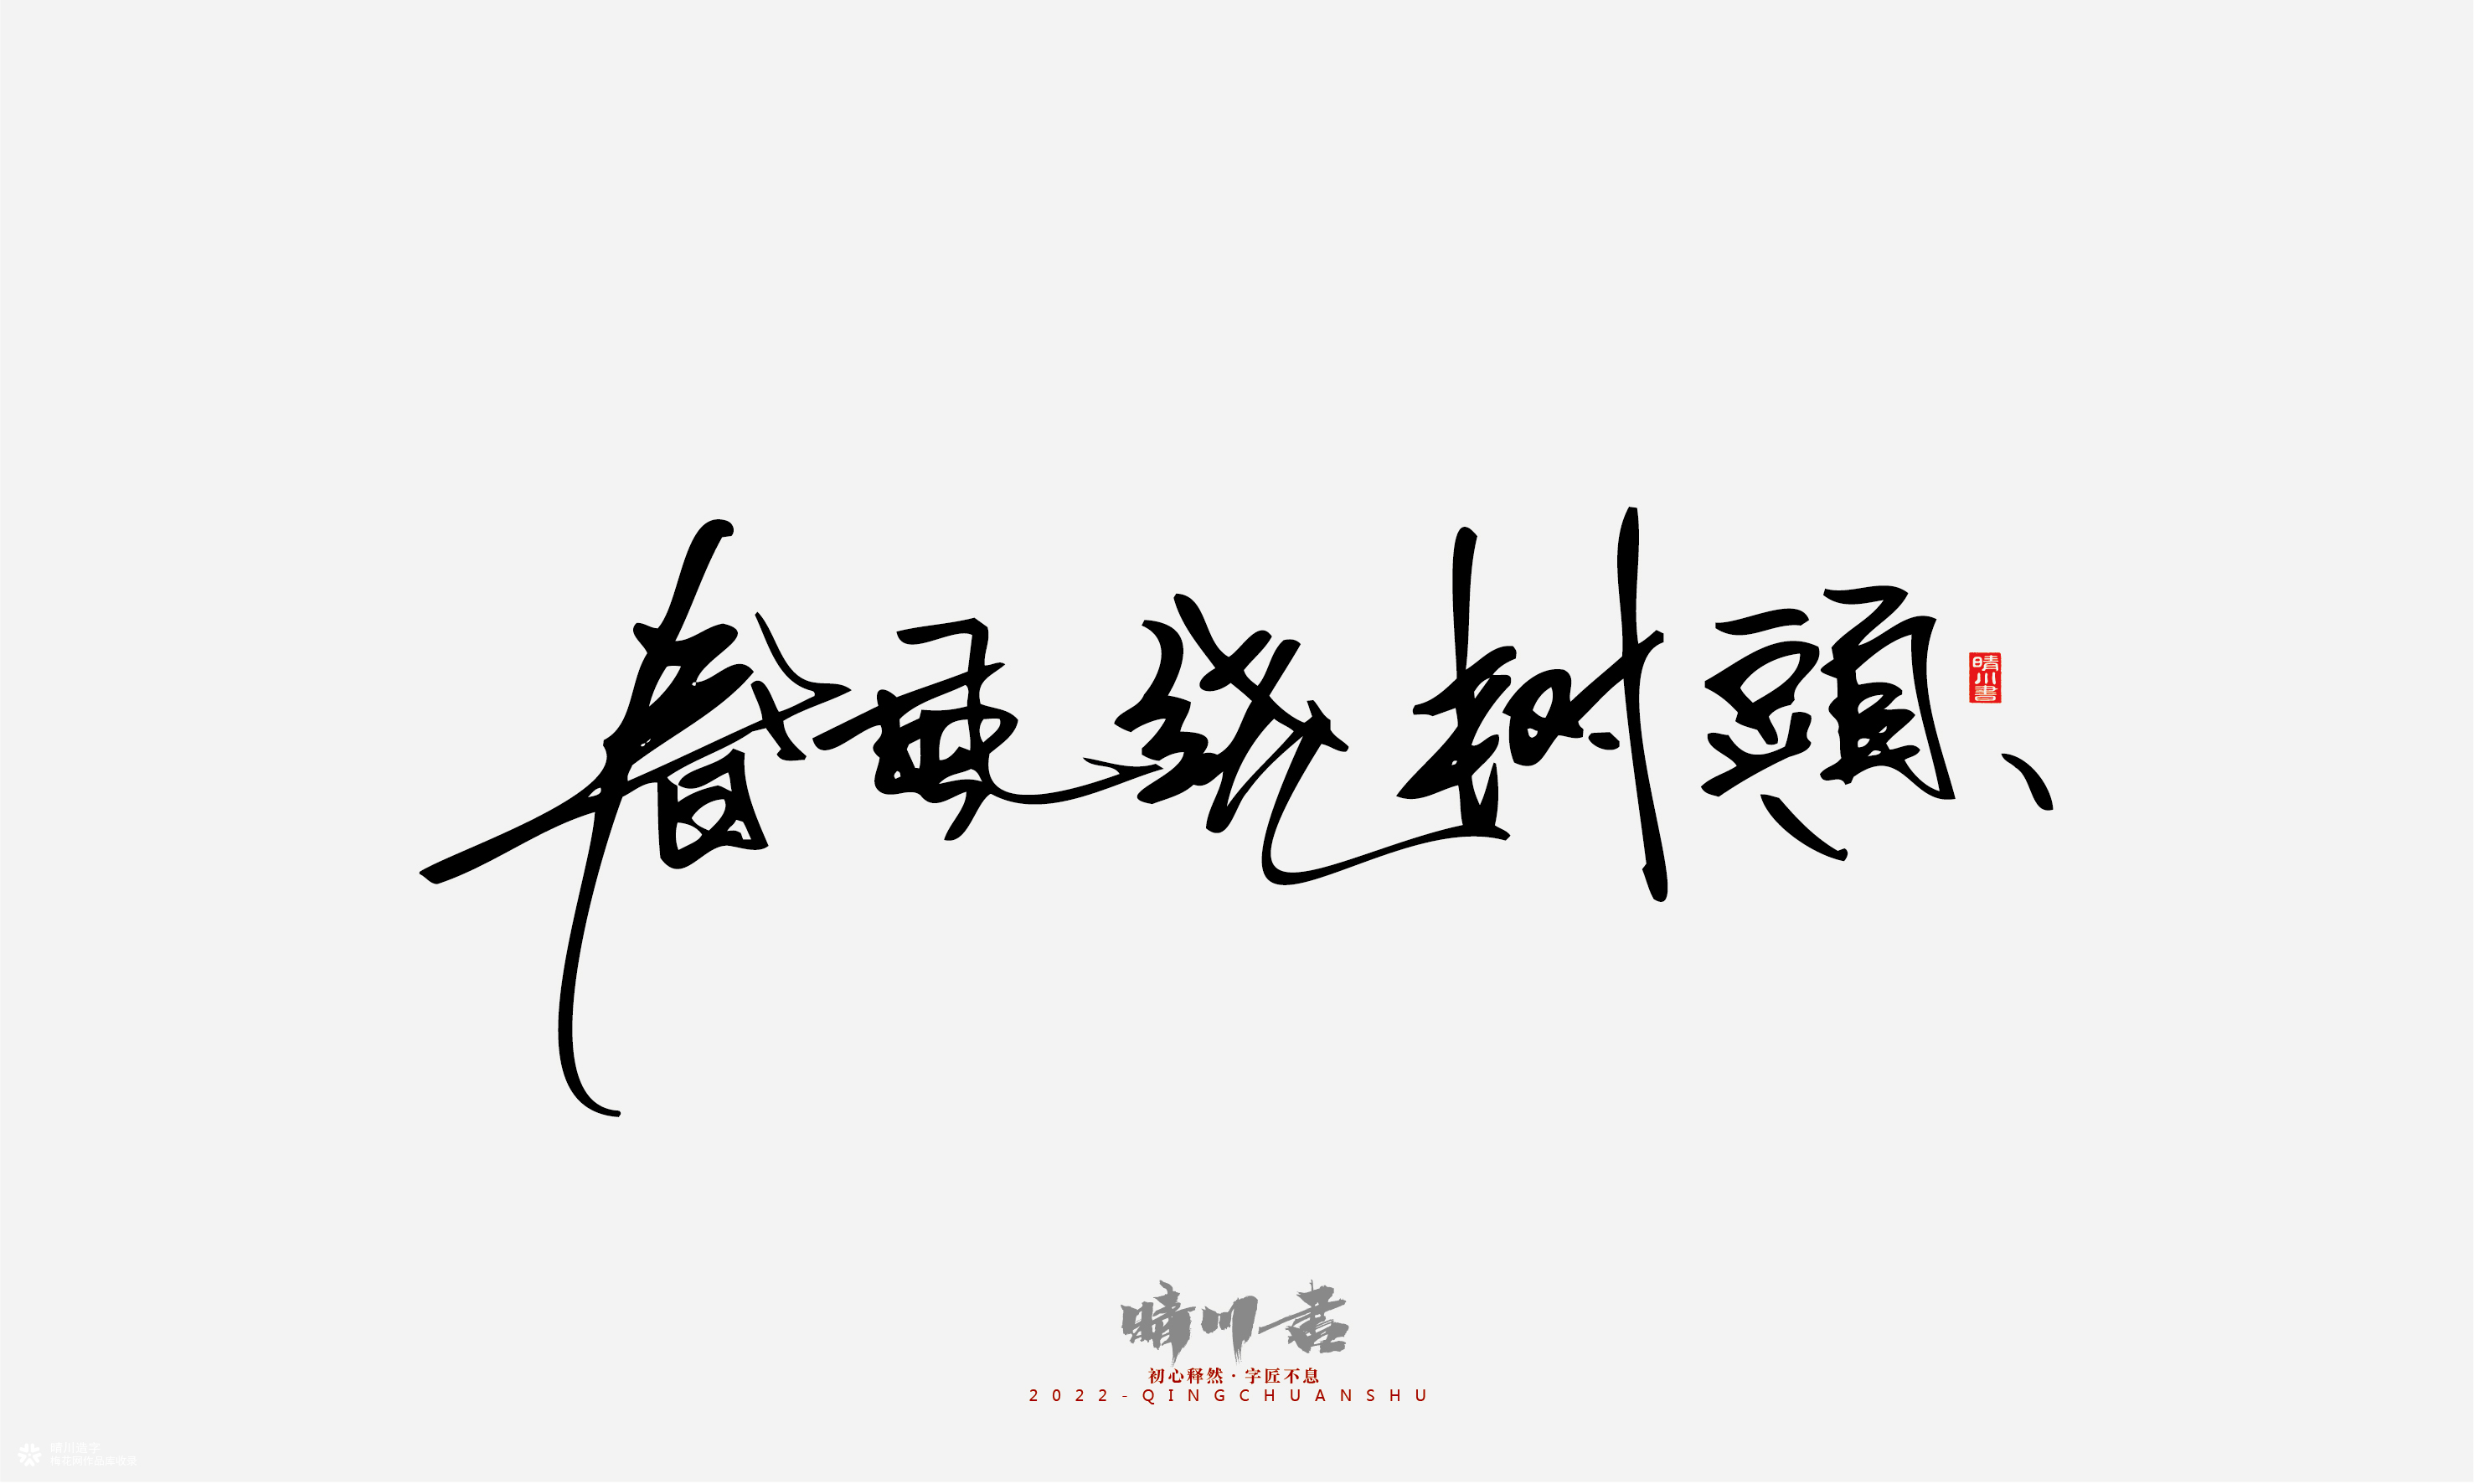 春風繞樹頭
晴川書
晴川書
初心释然·字匠不息
2022-QINGCHUANSHU